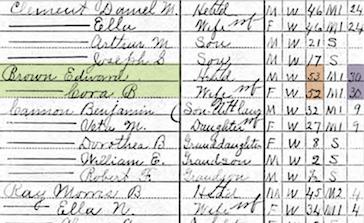 Daniel M. Head M W 46 M1 24
Ella Wife F W 46 M1 24
Arthur M. Son M W 21 S
Joseph S Son M W 17 S
Brown Edward Head M W 53 M1 30
Cora B Wife F W 52 M1 30
Cannon Benjamin Son-in-law M W 32 M1 9
Daughter F W 27 M1 9
Dorothea B Granddaughter F W 8 S
William E. Grandson M W 2 S
Robert Grandson W S
Ray Morris B Head W 45
Ella N. Wife F W 34 M1